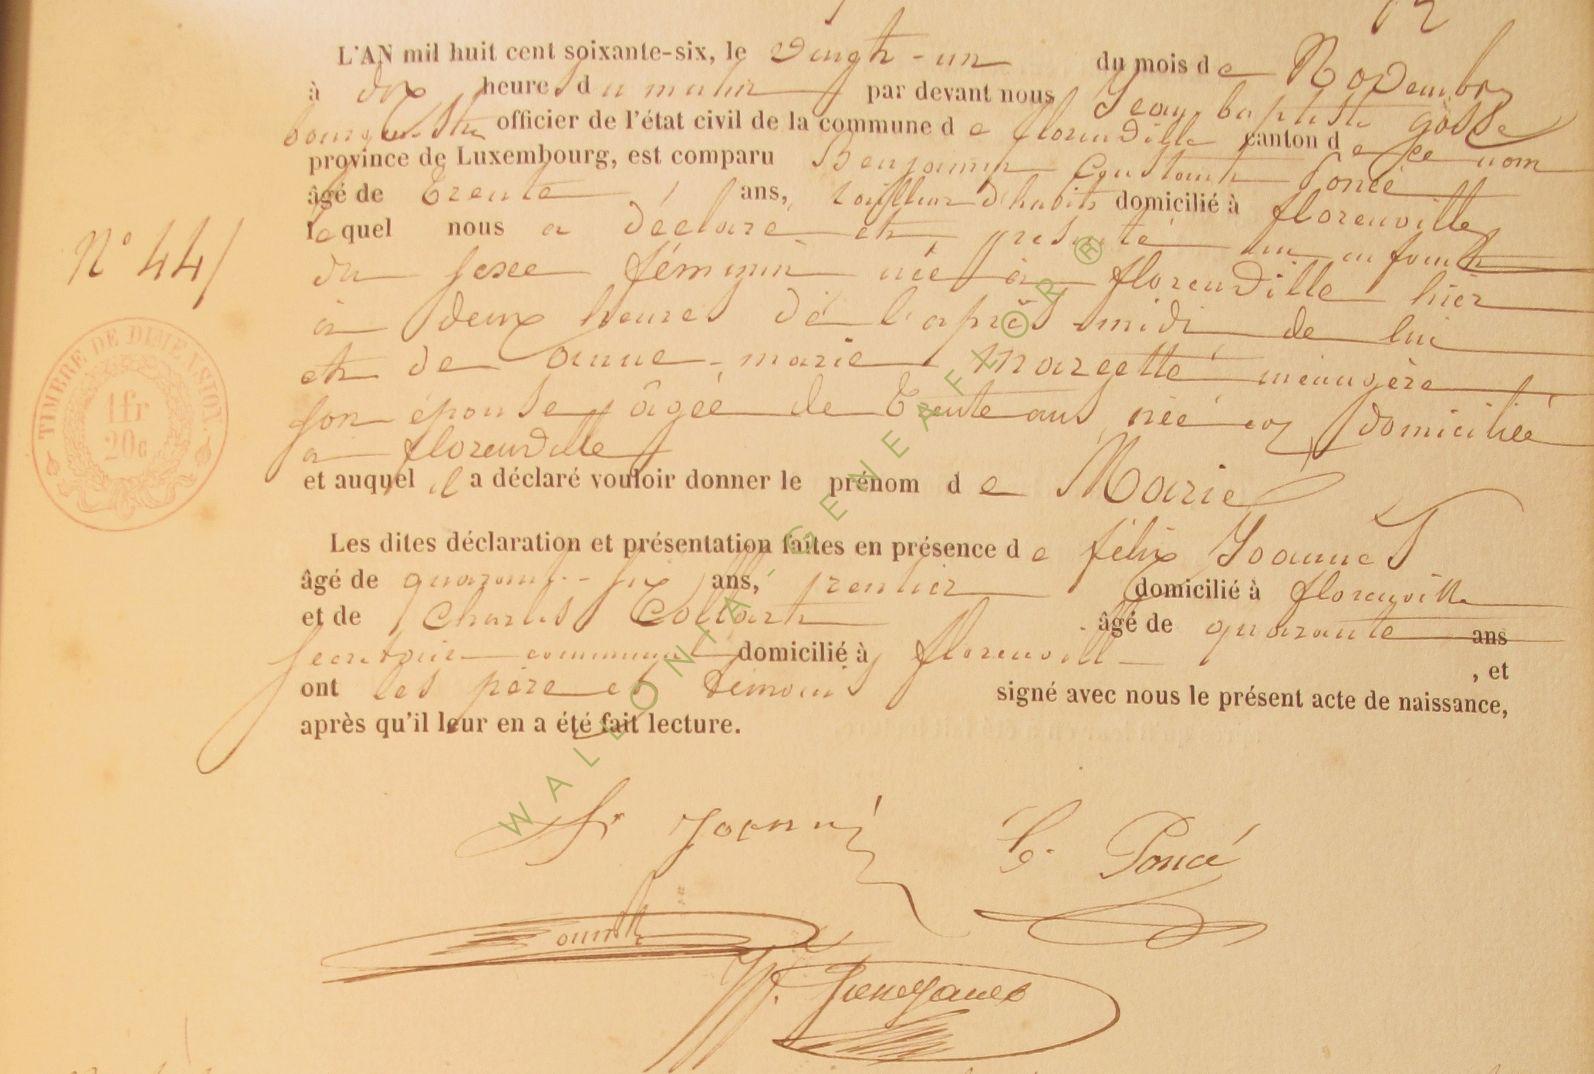 L'AN mil huit cent soixante-six, le vingt-un du mois de Novembre
à dix heures du matin par devant nous Jean baptiste gosse
bourgmestre officier de l'état civil de la commune de florenville canton de ce nom
province de Luxembourg, est comparu Benjamin Constant Poncé
âgé de trente ans, tailleur d'habits domicilié à florenville
lequel nous a déclaré et présenté un enfant
du sexe féminin née à florenville hier
à deux heures de l'après midi de lui
et de anne-marie Marcette ménagère
son épouse, âgée de trente ans née et domiciliée
à florenville
et auquel il a déclaré vouloir donner le prénom de Marie
Les dites déclaration et présentation faites en présence de félix Joannes
âgé de quarante-six ans, rentier domicilié à florenville
et de Charles Collart âgé de quarante ans
secrétaire communal domicilié à florenville , et
ont les père et témoins signé avec nous le présent acte de naissance,
après qu'il leur en a été fait lecture.
N° 44
TIMBRE DE DIMENSION
1fr
20c
C. Poncé
WALLONIA-GENEAFLOR®